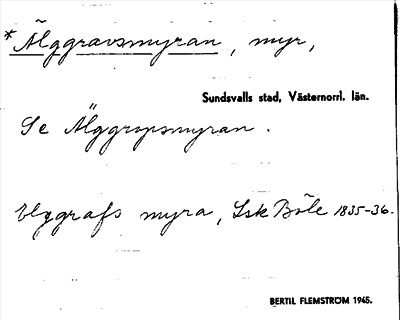 *Älggravsmyran, myr,
Sundsvalls stad, Västernorrl. län.
Se Älggropsmyran.
Elggrafs myra, Lsk Böle 1835-36.
BERTIL FLEMSTRÖM 1965.